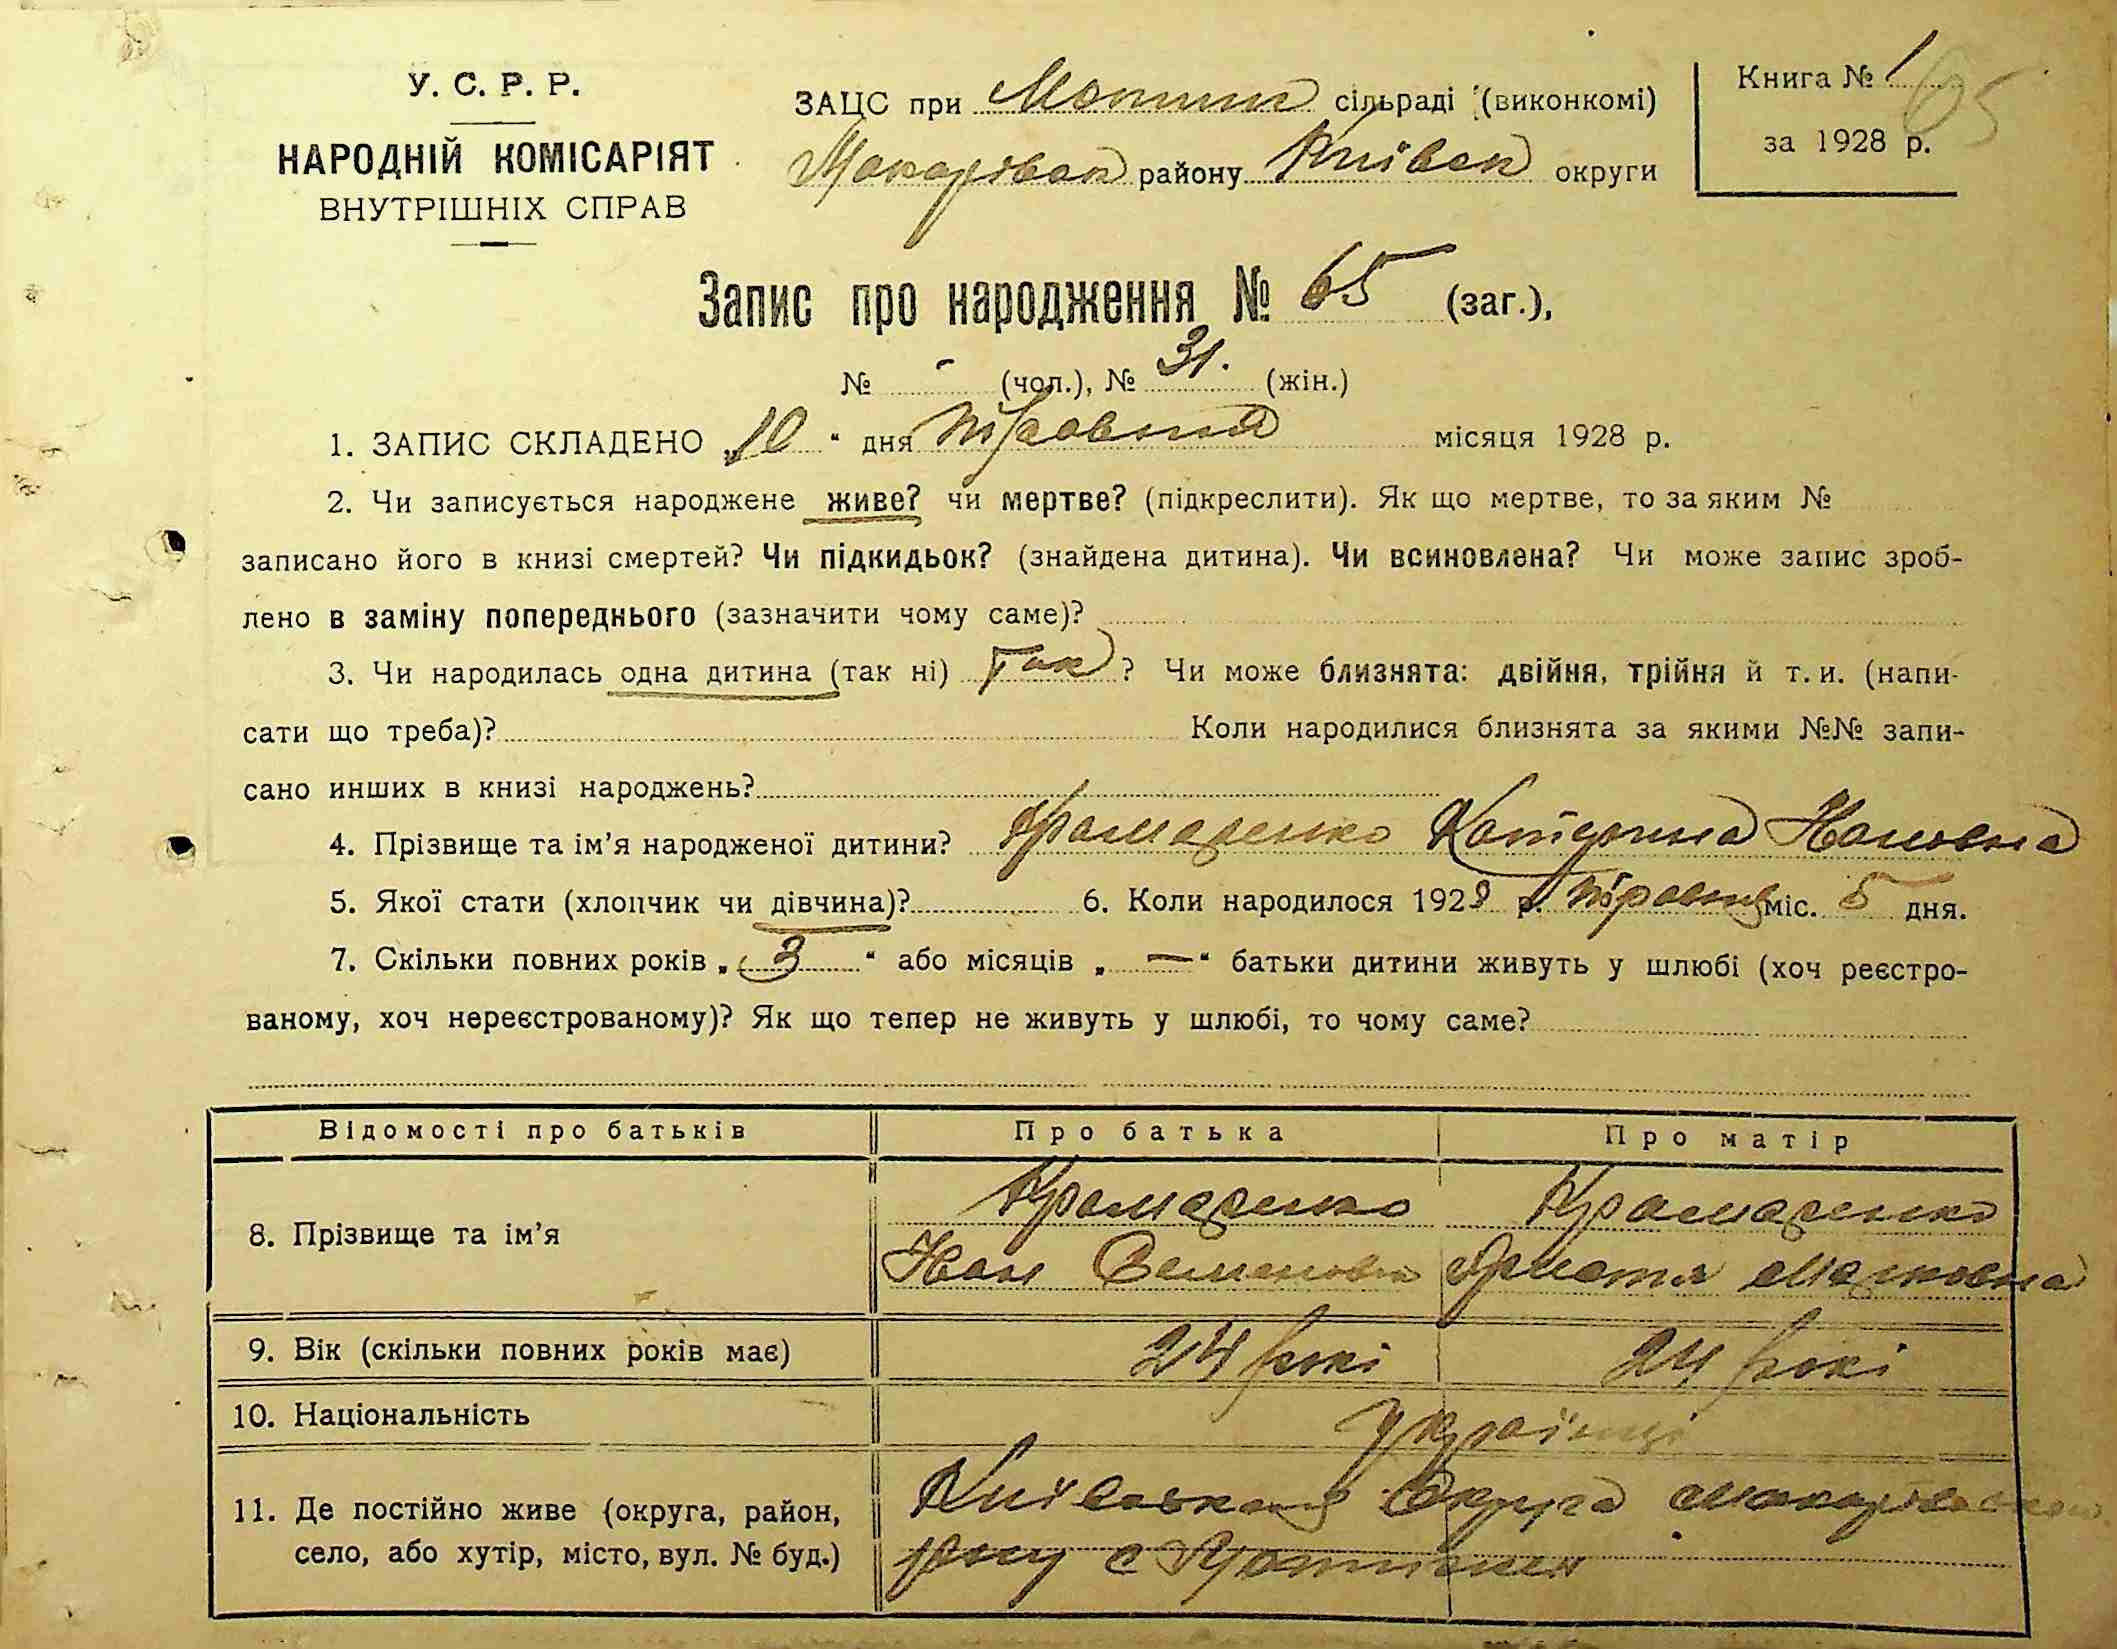 У. С. Р. Р.
НАРОДНІЙ КОМІСАРІЯТ
ВНУТРІШНІХ СПРАВ
ЗАЦС при сільраді (виконкомі)
Макарівськ району Київськ округи
Книга № 1 65
за 1928 р.
Запис про народження № 65 (заг.),
№ - (чол.), № 31. (жін.)
1. ЗАПИС СКЛАДЕНО „10“ дня травня місяця 1928 р.
2. Чи записується народжене живе? чи мертве? (підкреслити). Як що мертве, то за яким №
записано його в книзі смертей? Чи підкидьок? (знайдена дитина). Чи всиновлена? Чи може запис зроб-
лено в заміну попереднього (зазначити чому саме)?
3. Чи народилась одна дитина (так ні) Так? Чи може близнята: двійня, трійня й т. и. (напи-
сати що треба)? Коли народилися близнята за якими №№ запи-
сано инших в книзі народжень?
4. Прізвище та ім’я народженої дитини? Крамаренко Катерина Ивановна
5. Якої стати (хлопчик чи дівчина)? 6. Коли народилося 1928 р. травня міс. 5 дня.
7. Скільки повних років „3“ або місяців „—“ батьки дитини живуть у шлюбі (хоч реєстро-
ваному, хоч нереєстрованому)? Як що тепер не живуть у шлюбі, то чому саме?
Відомості про батьків Про батька Про матір
8. Прізвище та ім’я Крамаренко Крамаренко
Иван Семенович Христя Марковна
9. Вік (скільки повних років має) 24 рокі 24 рокі
10. Національність Українці
11. Де постійно живе (округа, район, Київська Округа Макарівськ
село, або хутір, місто, вул. № буд.) рну с